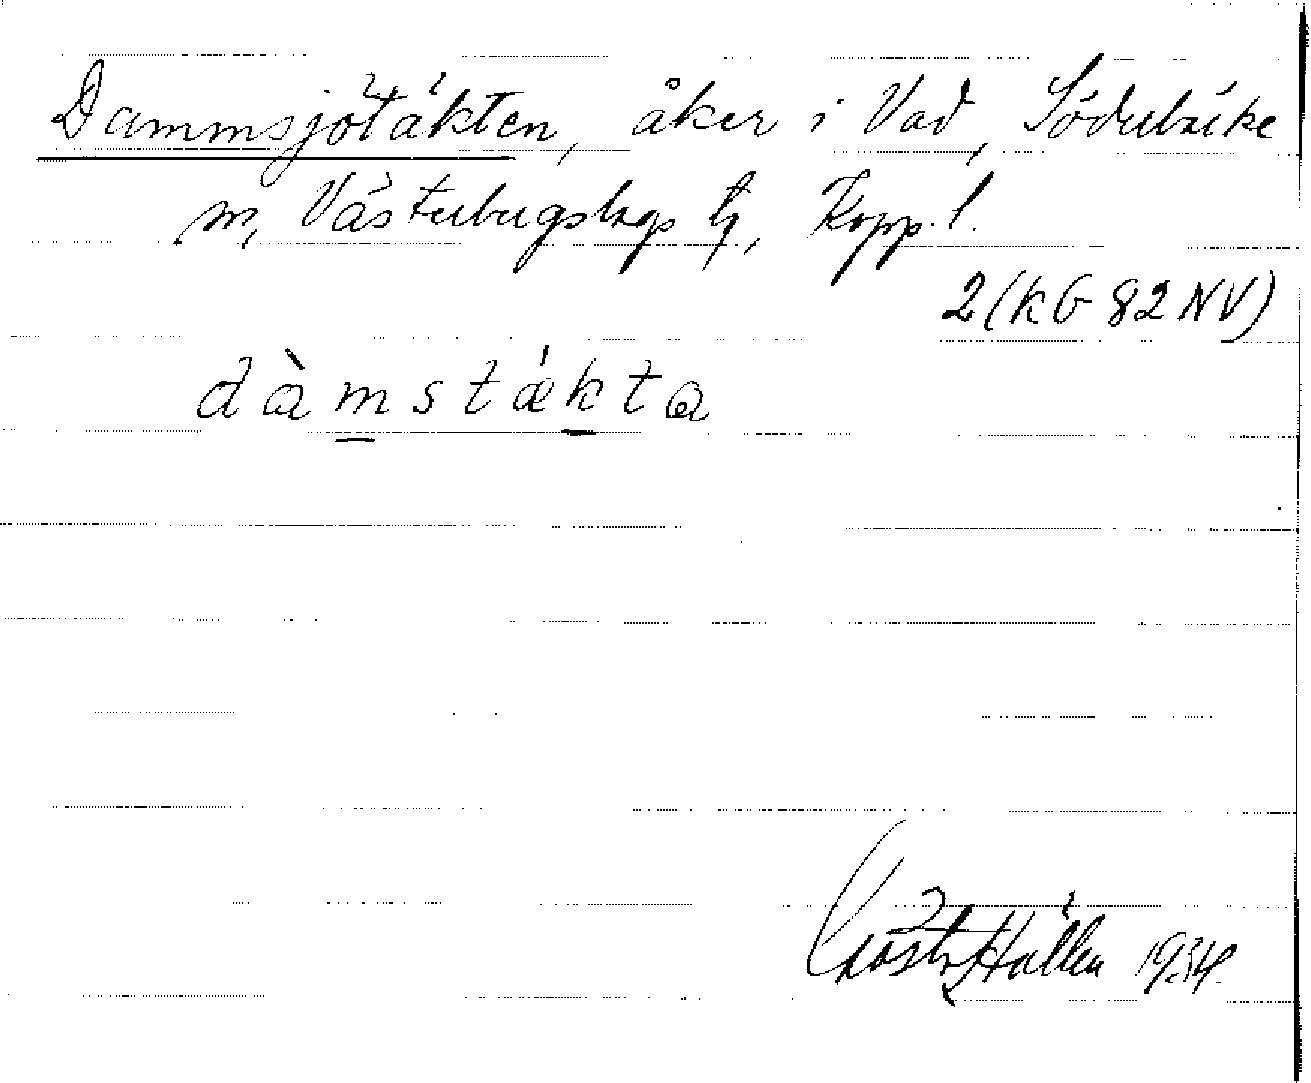 Dammsjötäkten, åker i Vad, Söderbärke
sn, Västerbergslags tg, Kopp. l.
2 (KG 82 NV)
dàmstǽkta
Gösta Hallén 1934.